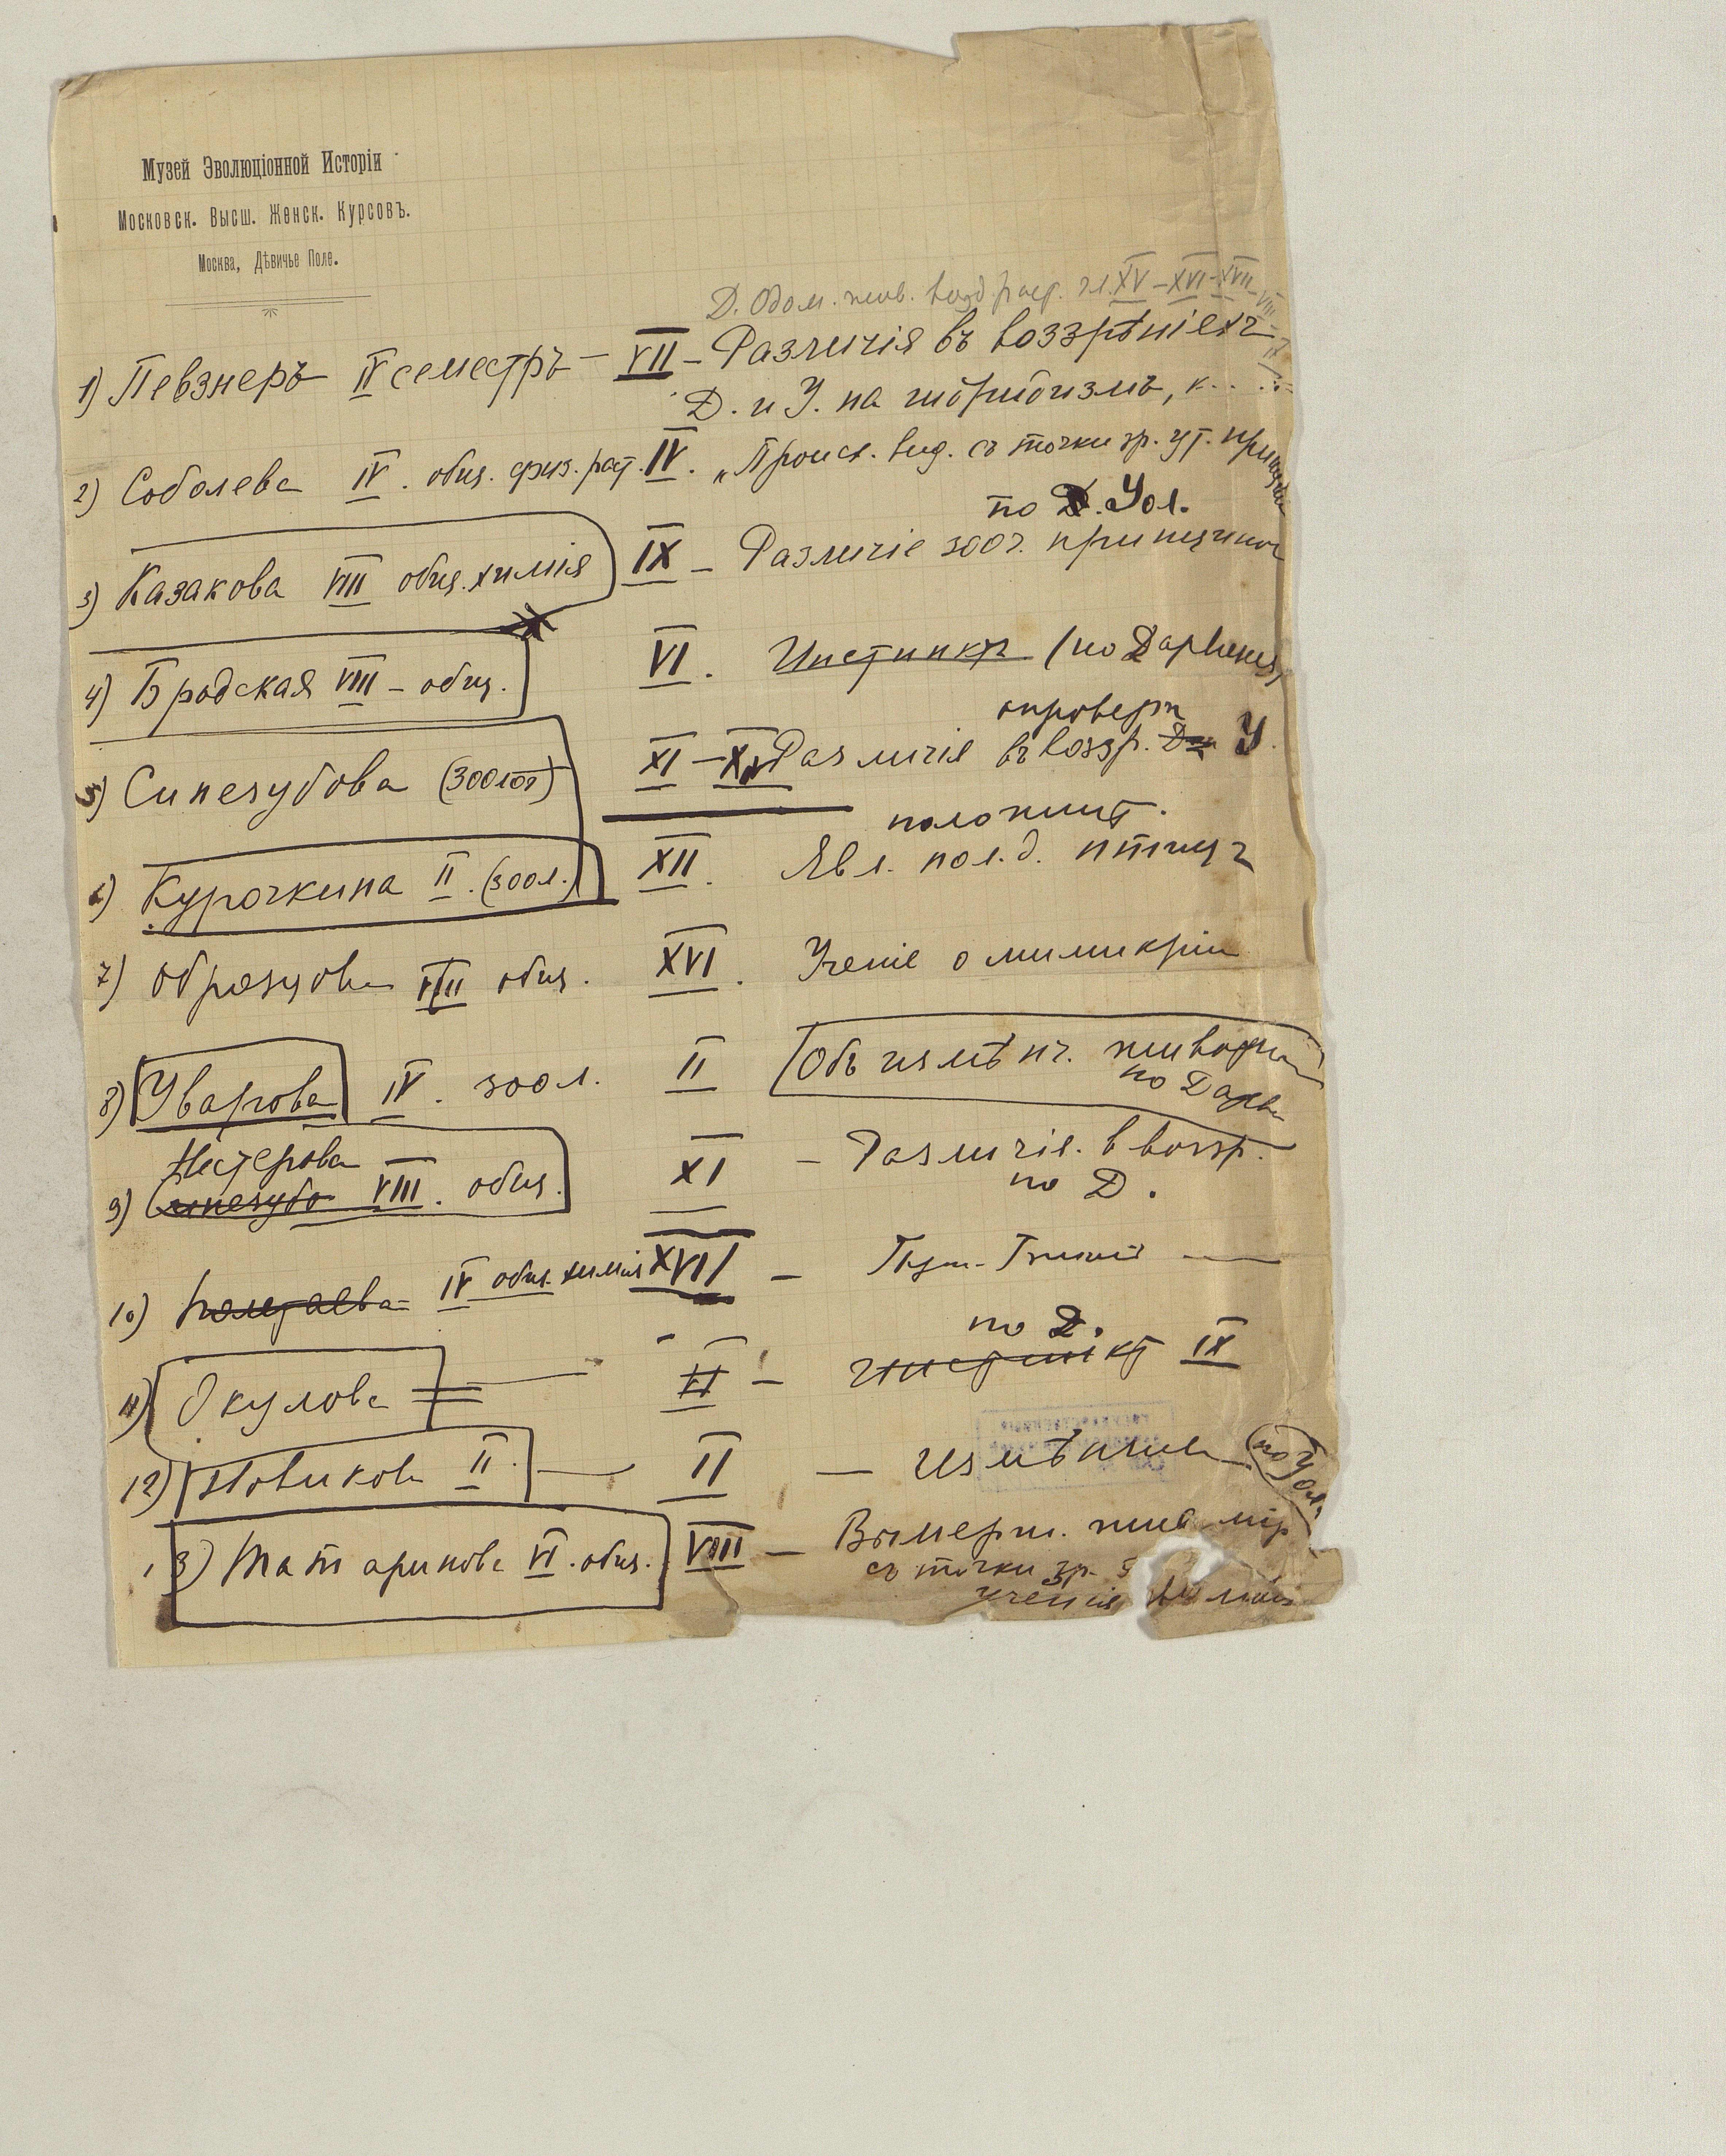 Музей Эволюціонной Исторіи
Московск. Высш. Женск. Курсовъ.
Москва, Дѣвичье Поле.
Д. Одом. жив. возд. раст. гл. XV – XVI – XVII – VIII
1) Певзнеръ IV семестръ – VII – Различія въ воззрѣніяхъ
Д. и У. на
2) Соболева IV. общ. физ. раст. IV. „Происх. вид. съ точки зр. ут. принципа
по Д. Уол.
3) Казакова VIII общ. химія IX – Различіе зооч.
4) Бродская VIII – общ. VI. Инстинкт (по Дарвину)
опроверж
5) Синезубова (зоолог) XI – Различія въ воззр. У.
положит.
6) Курочкина II. (зоол.) XII. Явл. пол. д. птицъ
7) Образцова VIII общ. XVI. Ученіе о мимикріи
8) Уварова IV. зоол. II Объ измѣнч. животн
по Дарв
Нестерова
9) синезубо VIII. общ. XI – Различія. в воззр.
по Д.
10) Полетаева IV общ. химія XVII –
по Д.
11) Окулова = VI – инстинкт IX
12) Новикова II. — II — Измѣнчив (по Уол.
13) Татаринова VI. общ. VIII – Вымерш. жив. мір
съ точки зр.
ученія